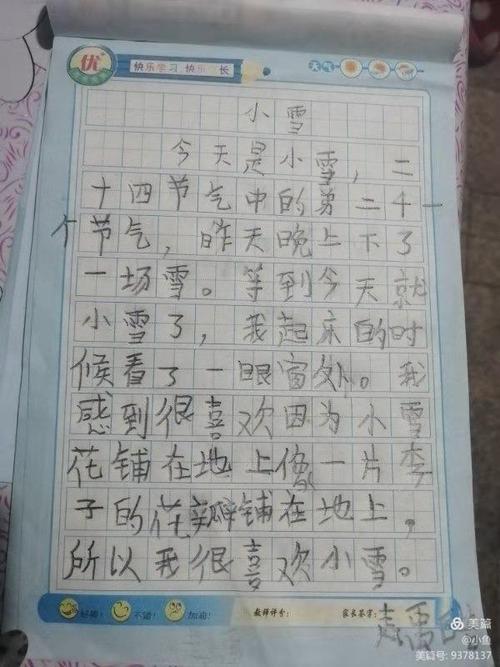 优
快乐学习 快乐成长
天气
小雪
今天是小雪，二
十四节气中的第二十一
个节气，昨天晚上下了
一场雪。等到今天就
小雪了，我起床的时
候看了一眼窗外。我
感到很喜欢因为小雪
花铺在地上像一片李
子的花瓣铺在地上，
所以我很喜欢小雪。
好棒！ 不错！ 加油！ 教师评分： 家长签字：
美篇
@小鱼
美篇号: 9378137